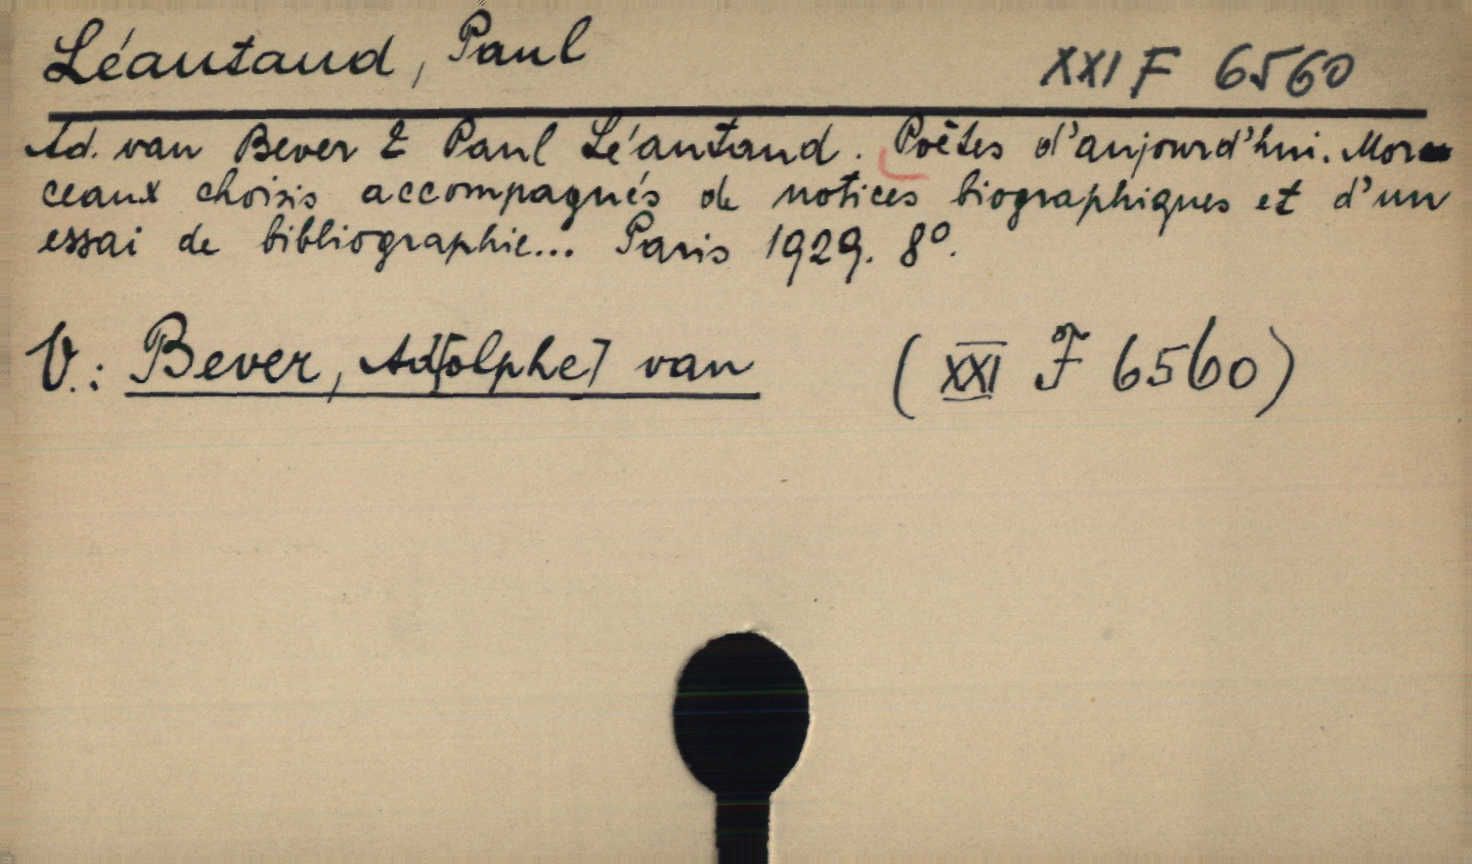 Léautaud, Paul
XXI F 6560
Ad. van Bever & Paul Léautaud. Poètes d'aujourd'hui. Mor-
ceaux choisis accompagnés de notices biographiques et d'un
essai de bibliographie... Paris 1929. 8°.
V.: Bever, Ad[olphe] van (XXI F 6560)